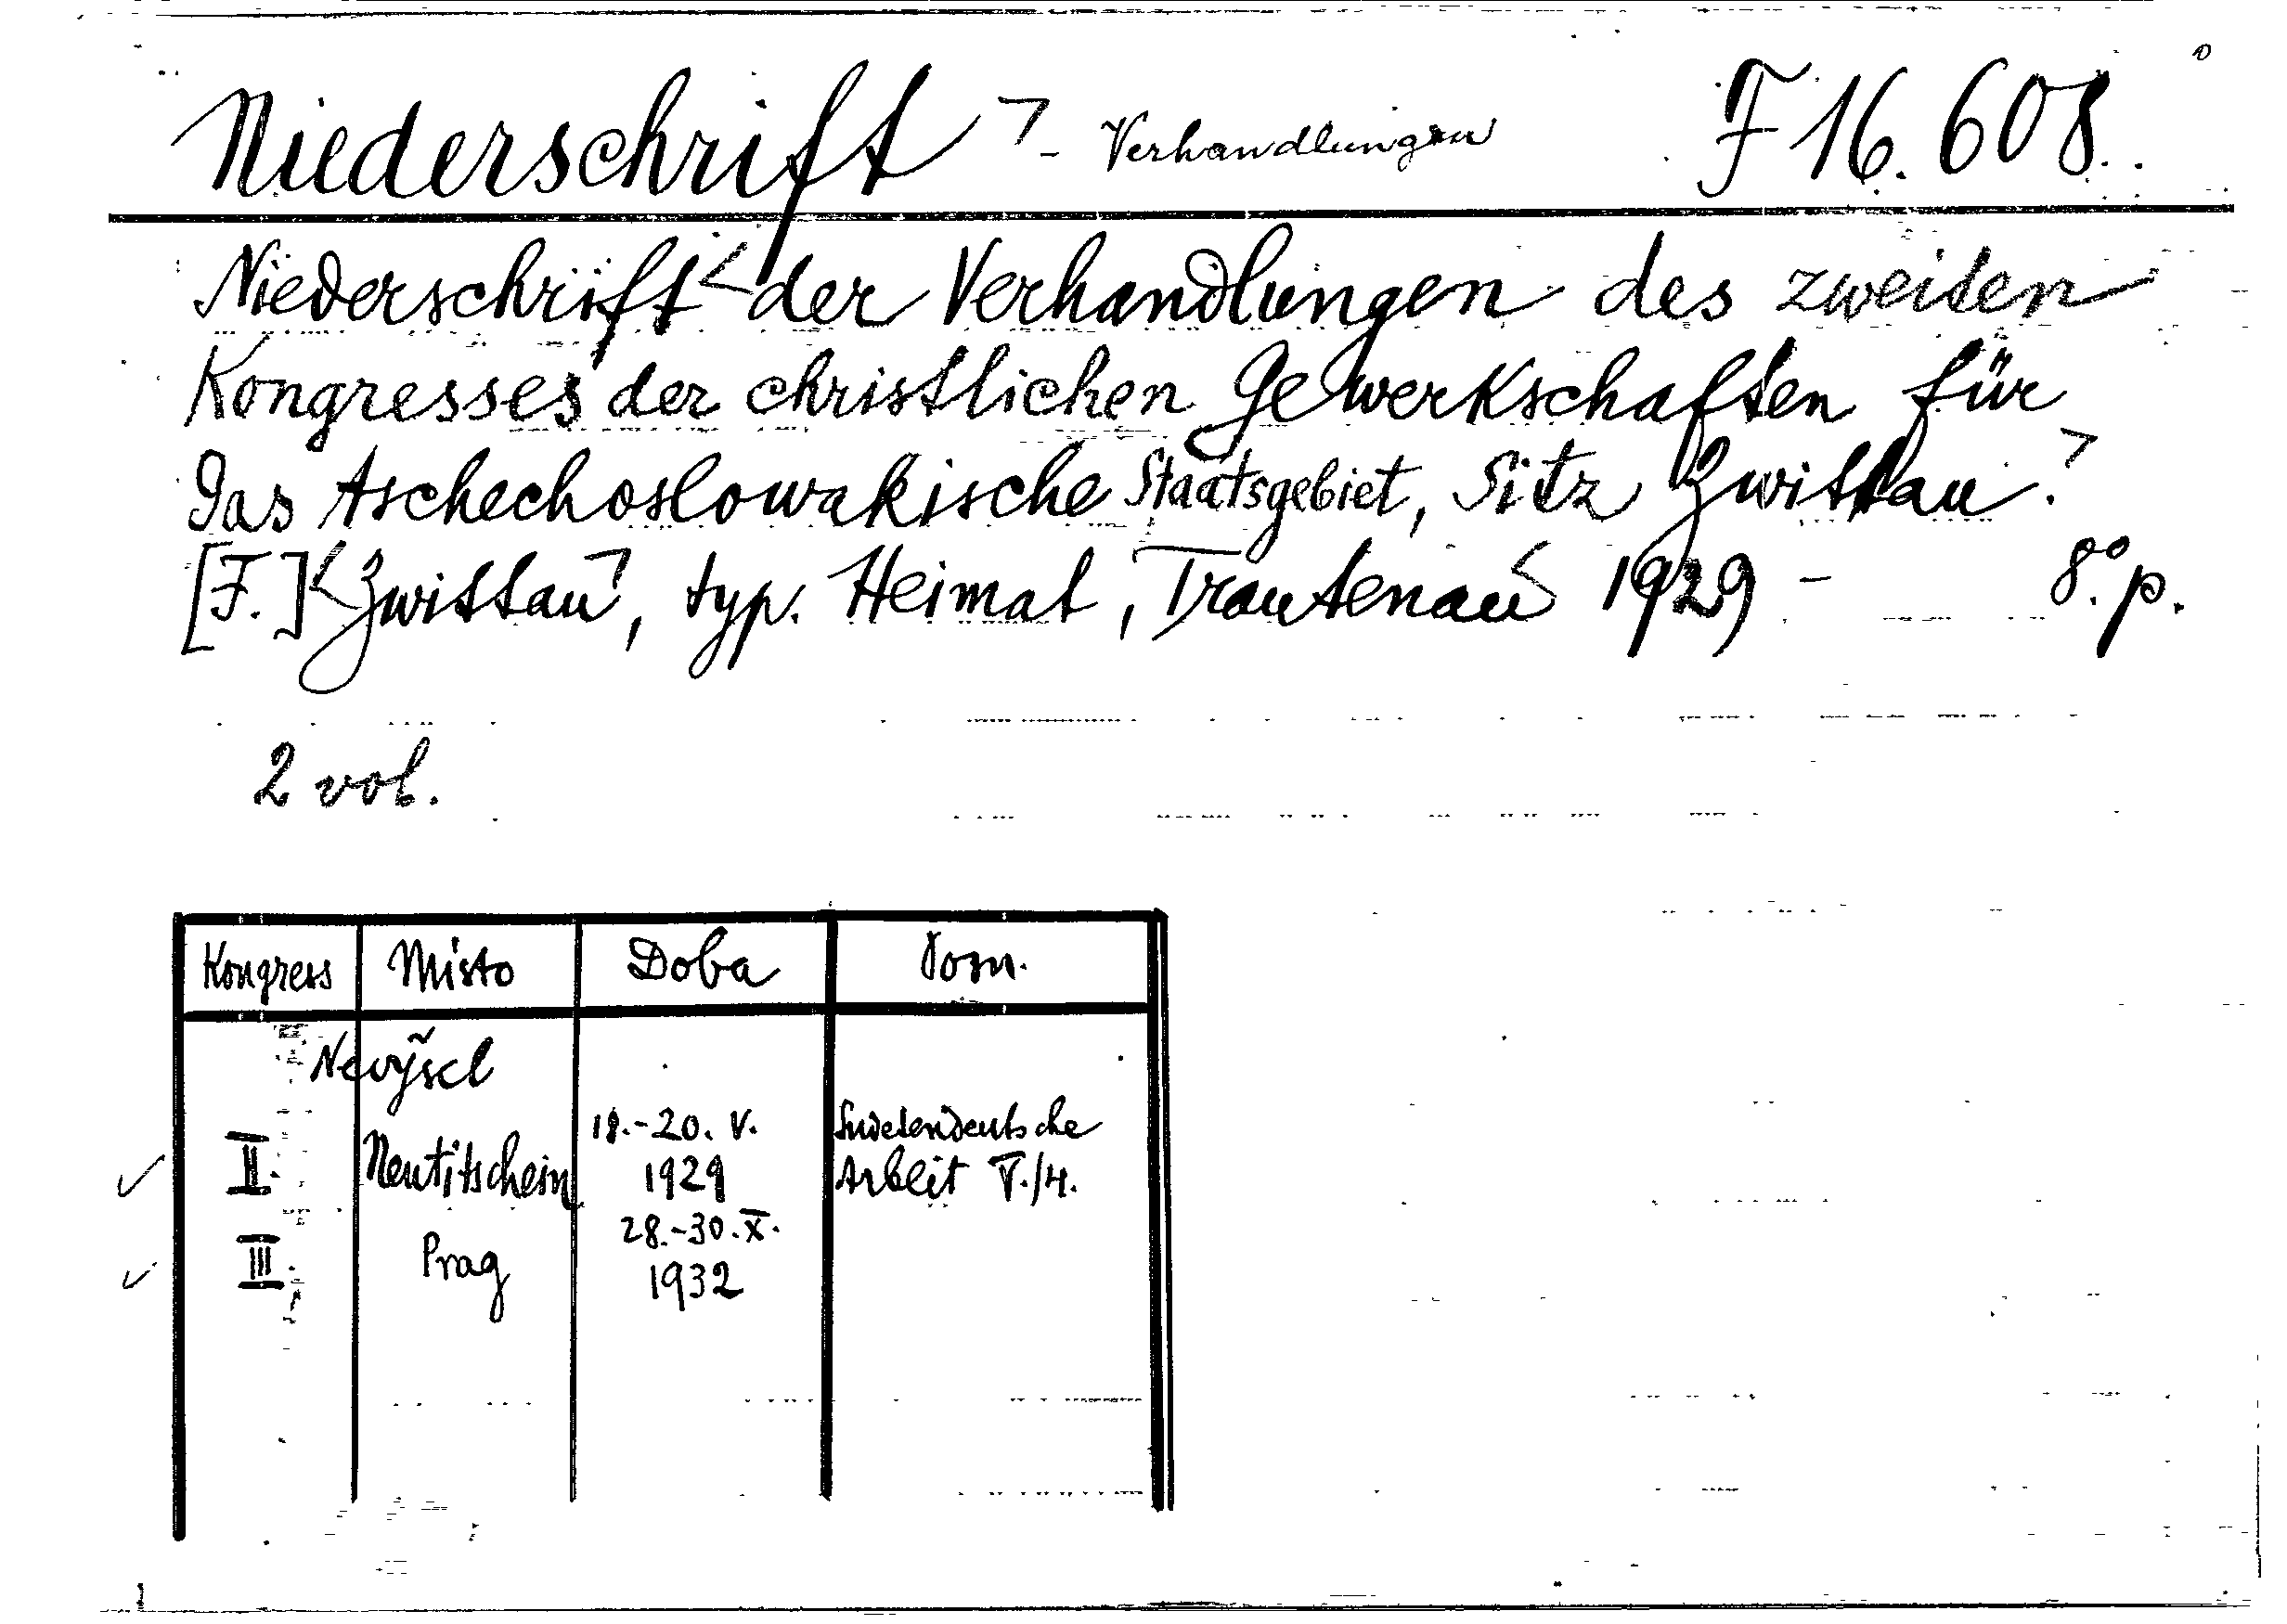 Niederschrift ¬ - Verhandlungen F 16.608.
Niederschrift < der Verhandlungen des zweiten
Kongresses der christlichen Gewerkschaften für
das tschechoslowakische Staatsgebiet, Sitz Zwittau. ¬
[F.] < Zwittau ¬, typ. Heimat, Trautenau < 1929 - 8° p.
2 vol.
Kongress Místo Doba Pozn.
Nevyšel
II. Neutitschein 18.-20. V. 1929 Sudetendeutsche Arbeit V./4.
III. Prag 28.-30. X. 1932